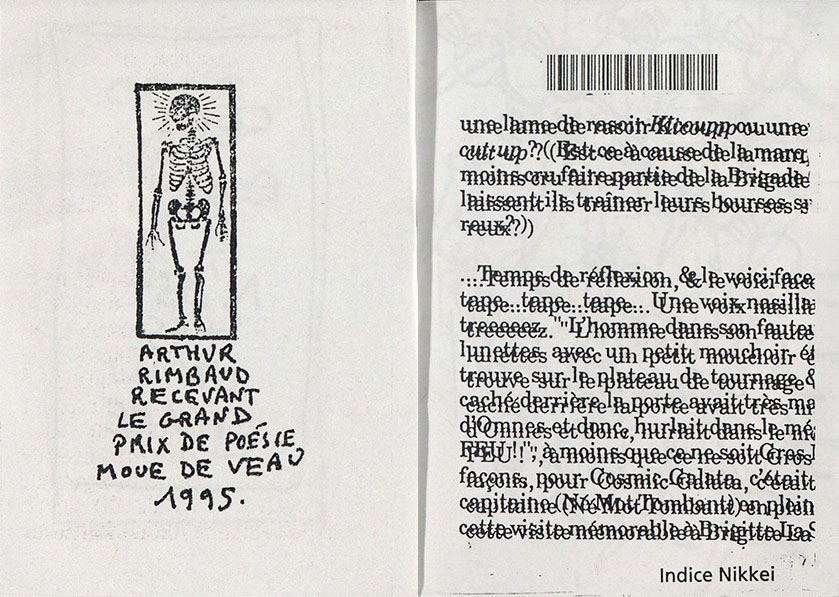 ARTHUR
RIMBAUD
RECEVANT
LE GRAND
PRIX DE POÉSIE
MOUE DE VEAU
1995.
une lame de rasoir ou une
cutt up?((Est ce à cause de la
moins cru faire partie de la Brigade
laissent ils traîner leurs bourses
reux?))
...Temps de réflexion, & le voici face
tape...tape...tape... Une voix nasilla
treeeeez." "L'homme dans son
lunettes avec un petit mouchoir
trouve sur le plateau de tournage &
caché derrière la porte avait très
d'Omnes et donc, hurlait dans le
FEU!!", à moins que ce ne soit Gros
façons, pour Cosmic Galata, c'était
capitaine (Né Mot Tombant) en plein
cette visite mémorable à Brigitte La
Indice Nikkei